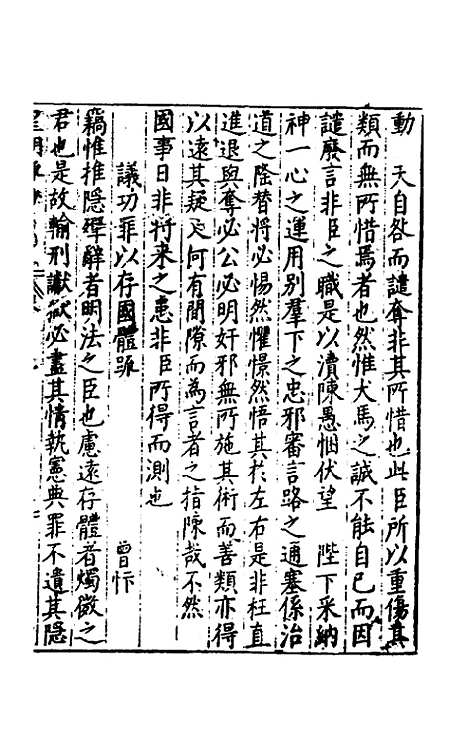 動　天自欲而譴奪非其所惜也此臣所以重傷其
類而無所惜焉者也然惟犬馬之誠不能自已而因
譴廢言非臣之職是以瀆陳愚悃伏望　陛下采納
神一心之運用别羣下之忠邪審言路之通塞係治
道之隆替將必惕然懼憬然悟其於左右是非枉直
進退與奪必公必明奸邪無所施其術而善類亦得
以遠其疑尺何有間隙而為言者之指陳哉不然
國事日非将来之患非臣所得而測也
議功罪以存國體疏　曾忭
籍惟推隐殫辭者明法之臣也慮遠存體者燭微之
君也是故輸刑讞獄必盡其情執憲典罪不遺其隠